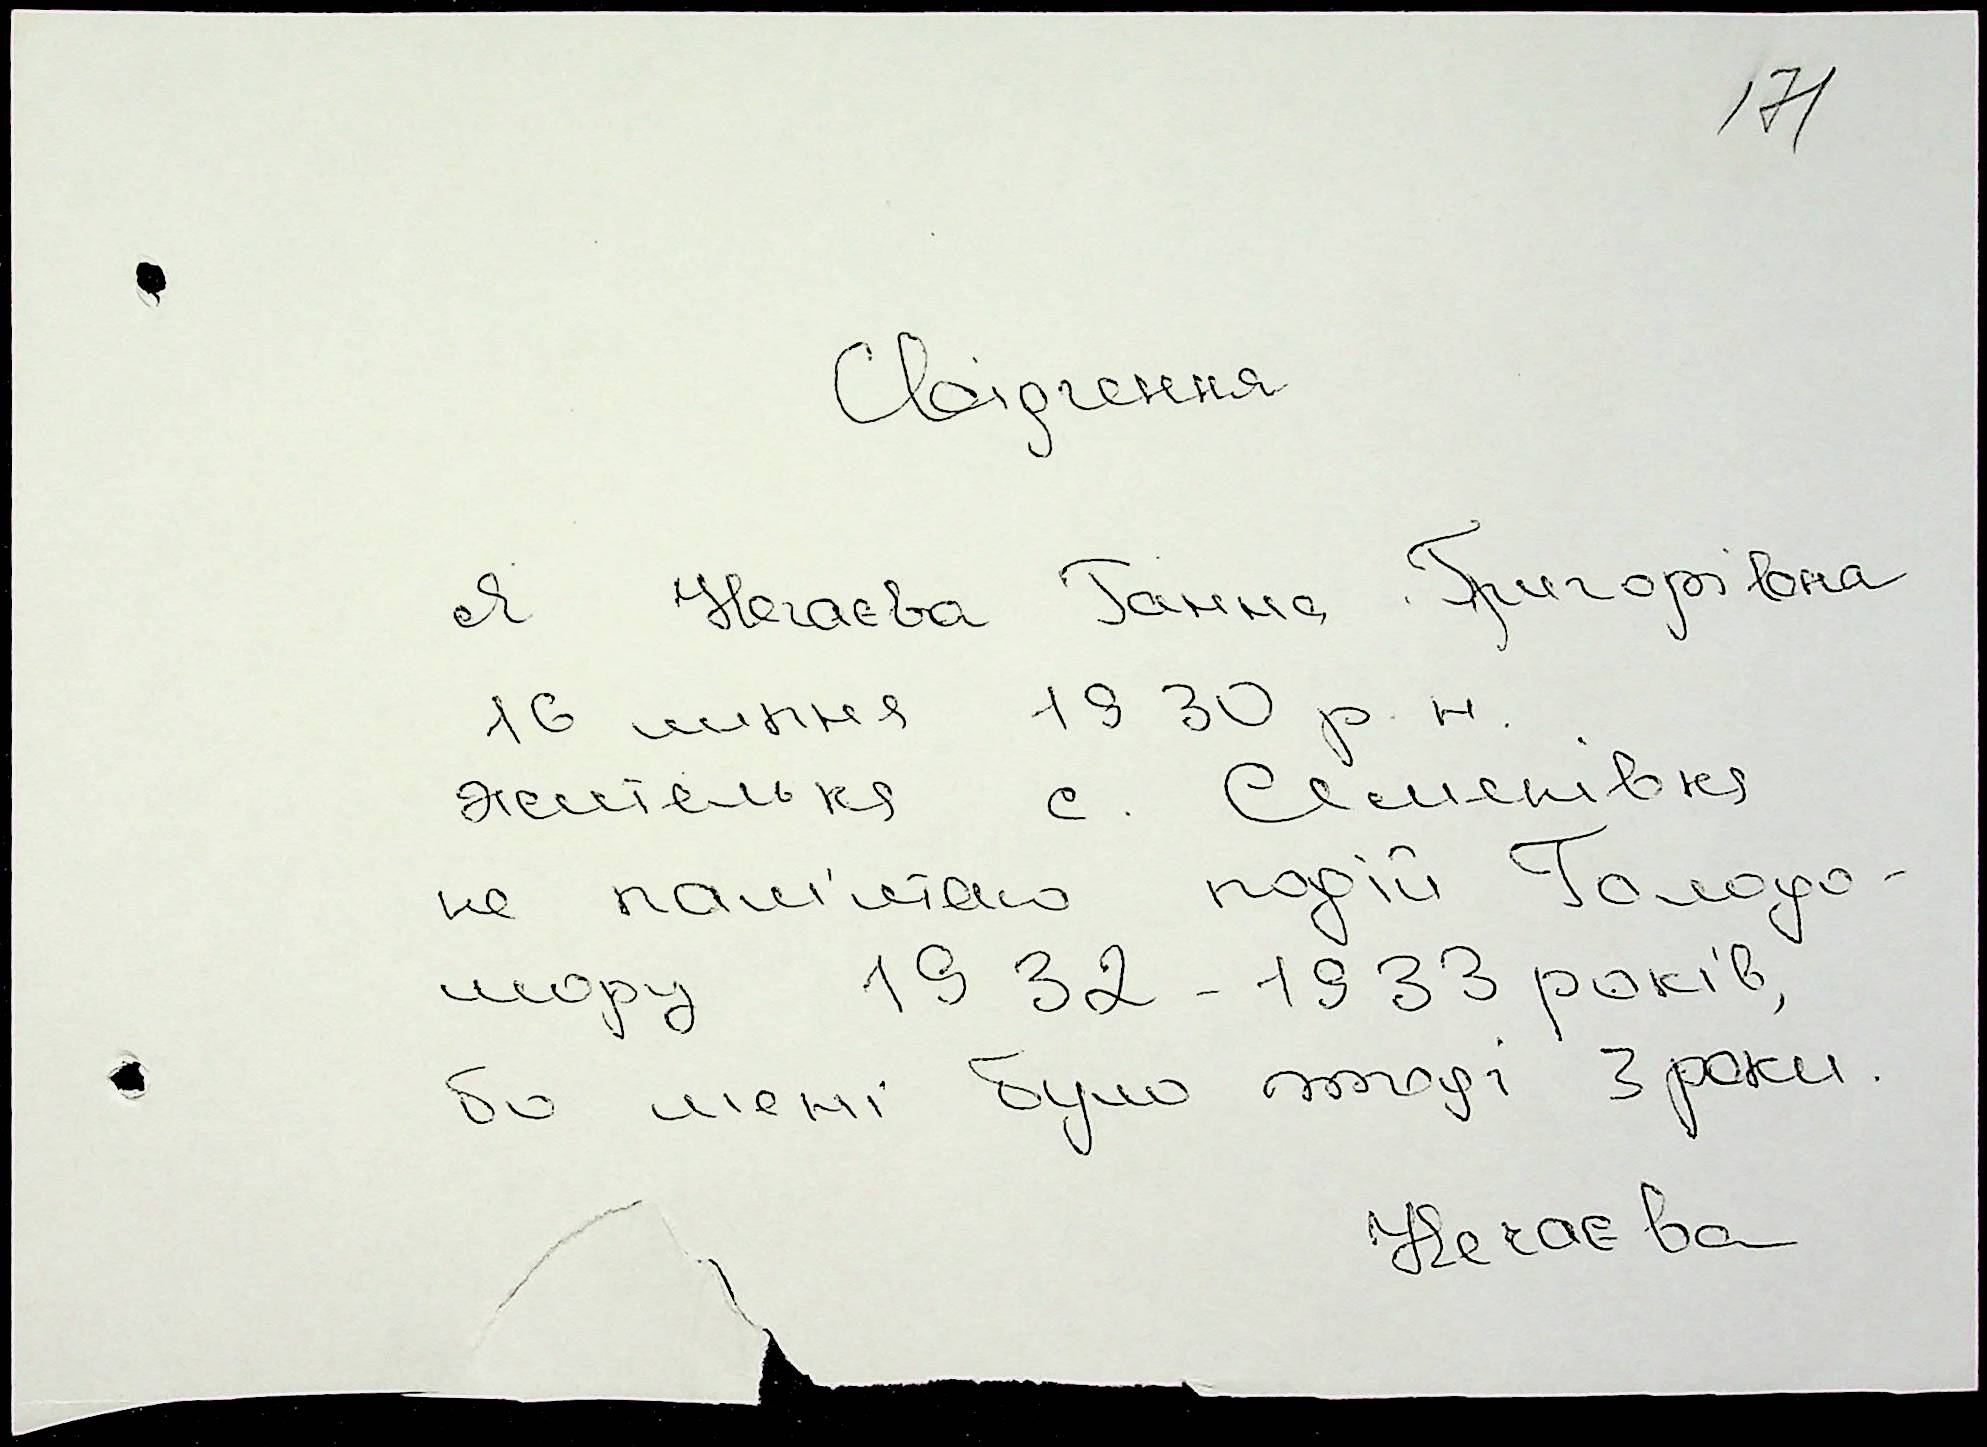 171
Свідчення
Я Нечаєва Ганна Григорівна
16 липня 1930 р. н.
жителька с. Семенівка
не пам'ятаю подій Голодо-
мору 1932-1933 років,
бо мені було тоді 3 роки.
Нечаєва